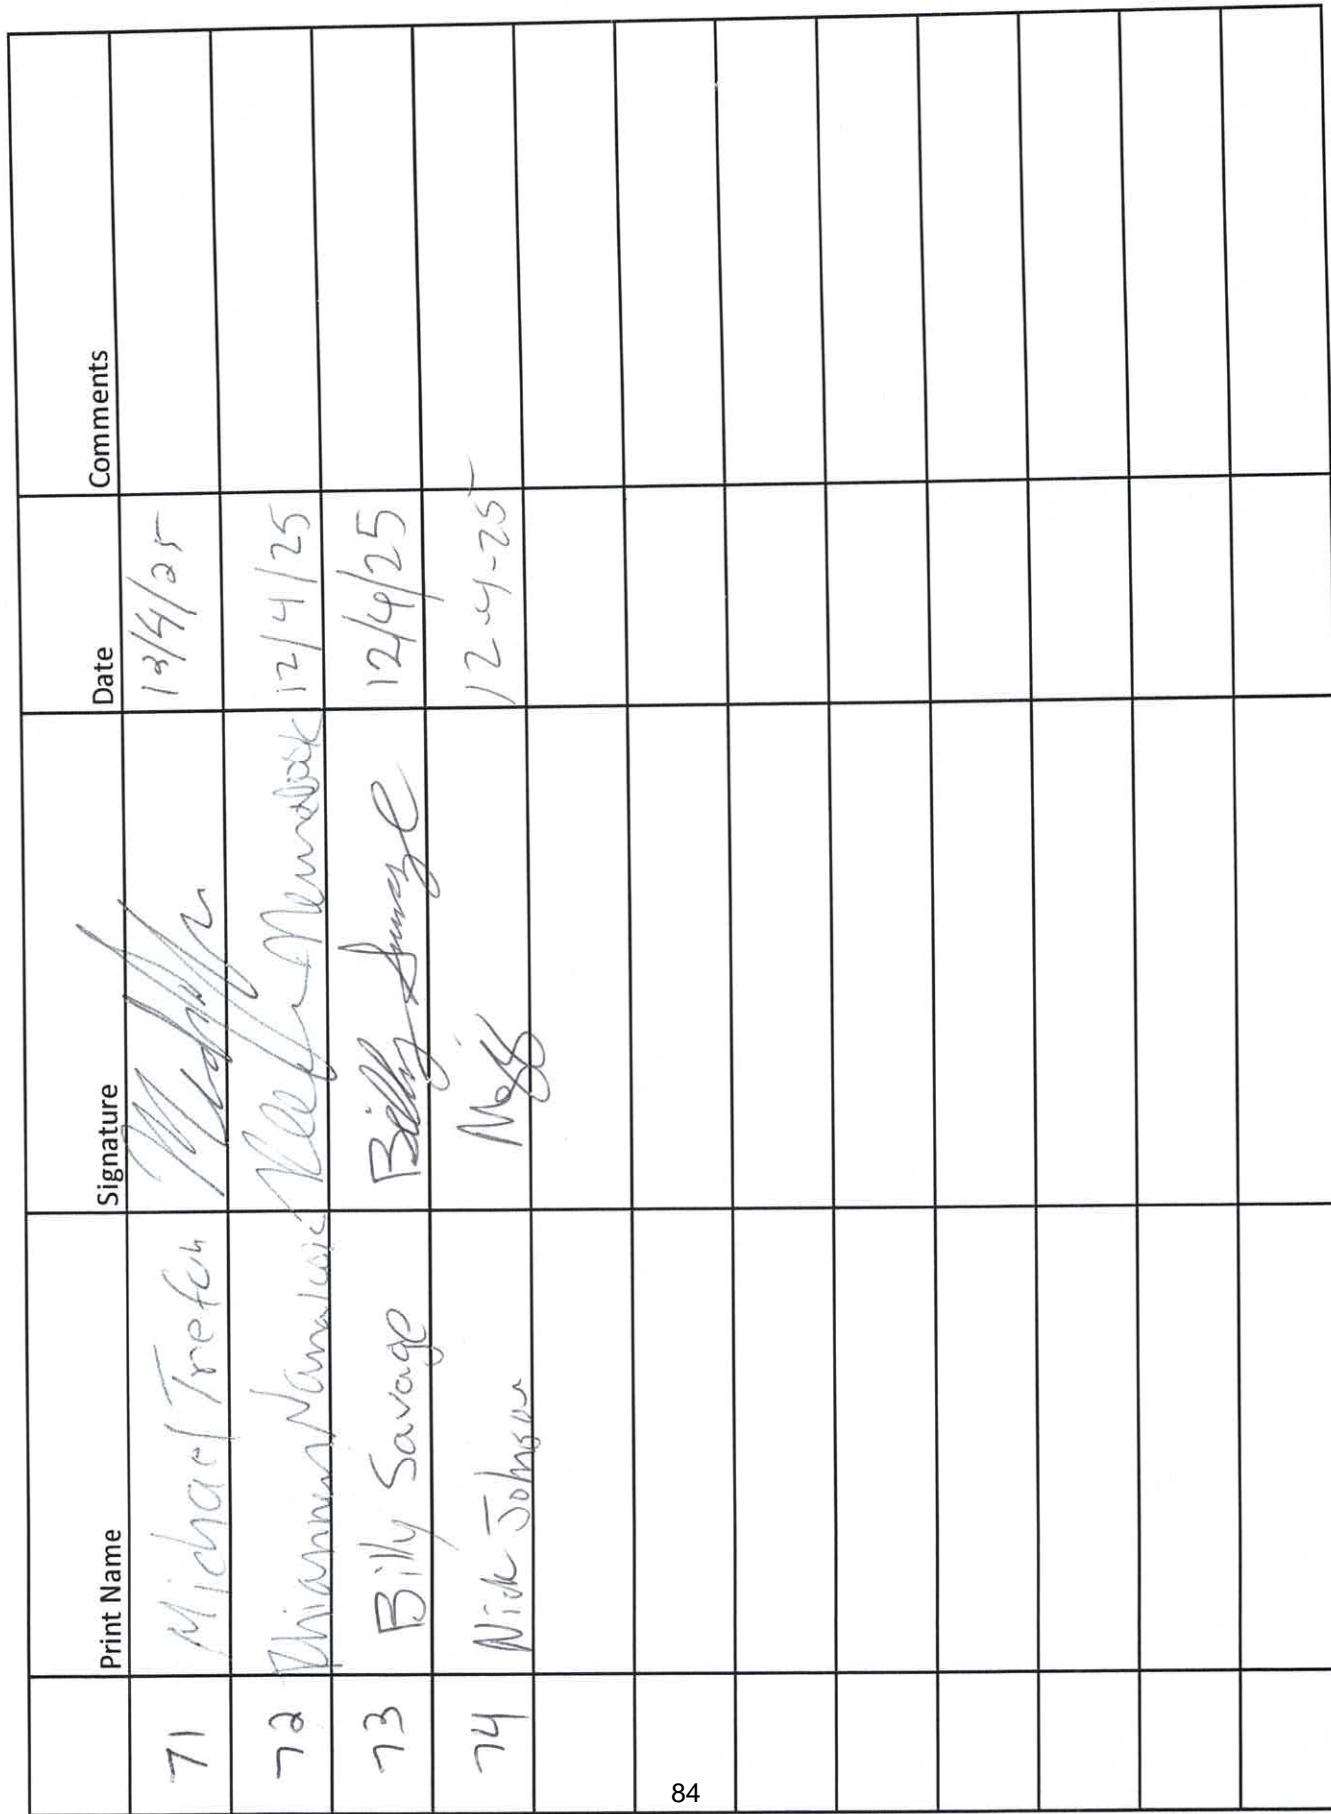 Print Name Signature Date Comments
71 Michael 12/4/25
72 12/4/25
73 Billy Savage Billy Savage 12/4/25
74 Nick Johnson 12-4-25
84